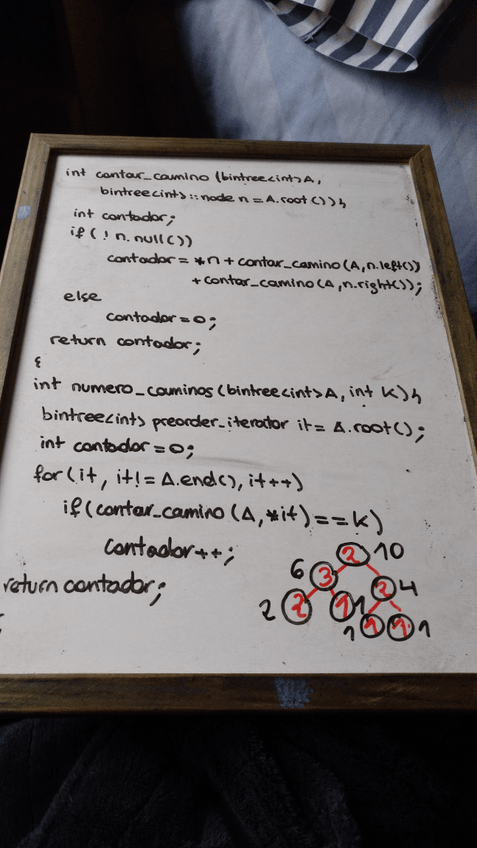 int contar_camino (bintree<int>A,
bintree<int>::node n = A.root()){
int contador;
if (!n.null())
contador = *n + contar_camino(A,n.left())
+contar_camino(A,n.right());
else
contador=0;
return contador;
}
int numero_caminos (bintree<int>A, int k){
bintree<int> preorder_iterator it= A.root();
int contador=0;
for(it, it!= A.end(), it++)
if(contar_camino (A,*it)==k)
contador++;
return contador;
2 10
6 3
2 4
2 2 1 1
1 1 1 1